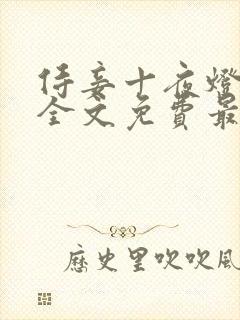 侍妾十夜燈
全文免費最
歷史里吹吹風